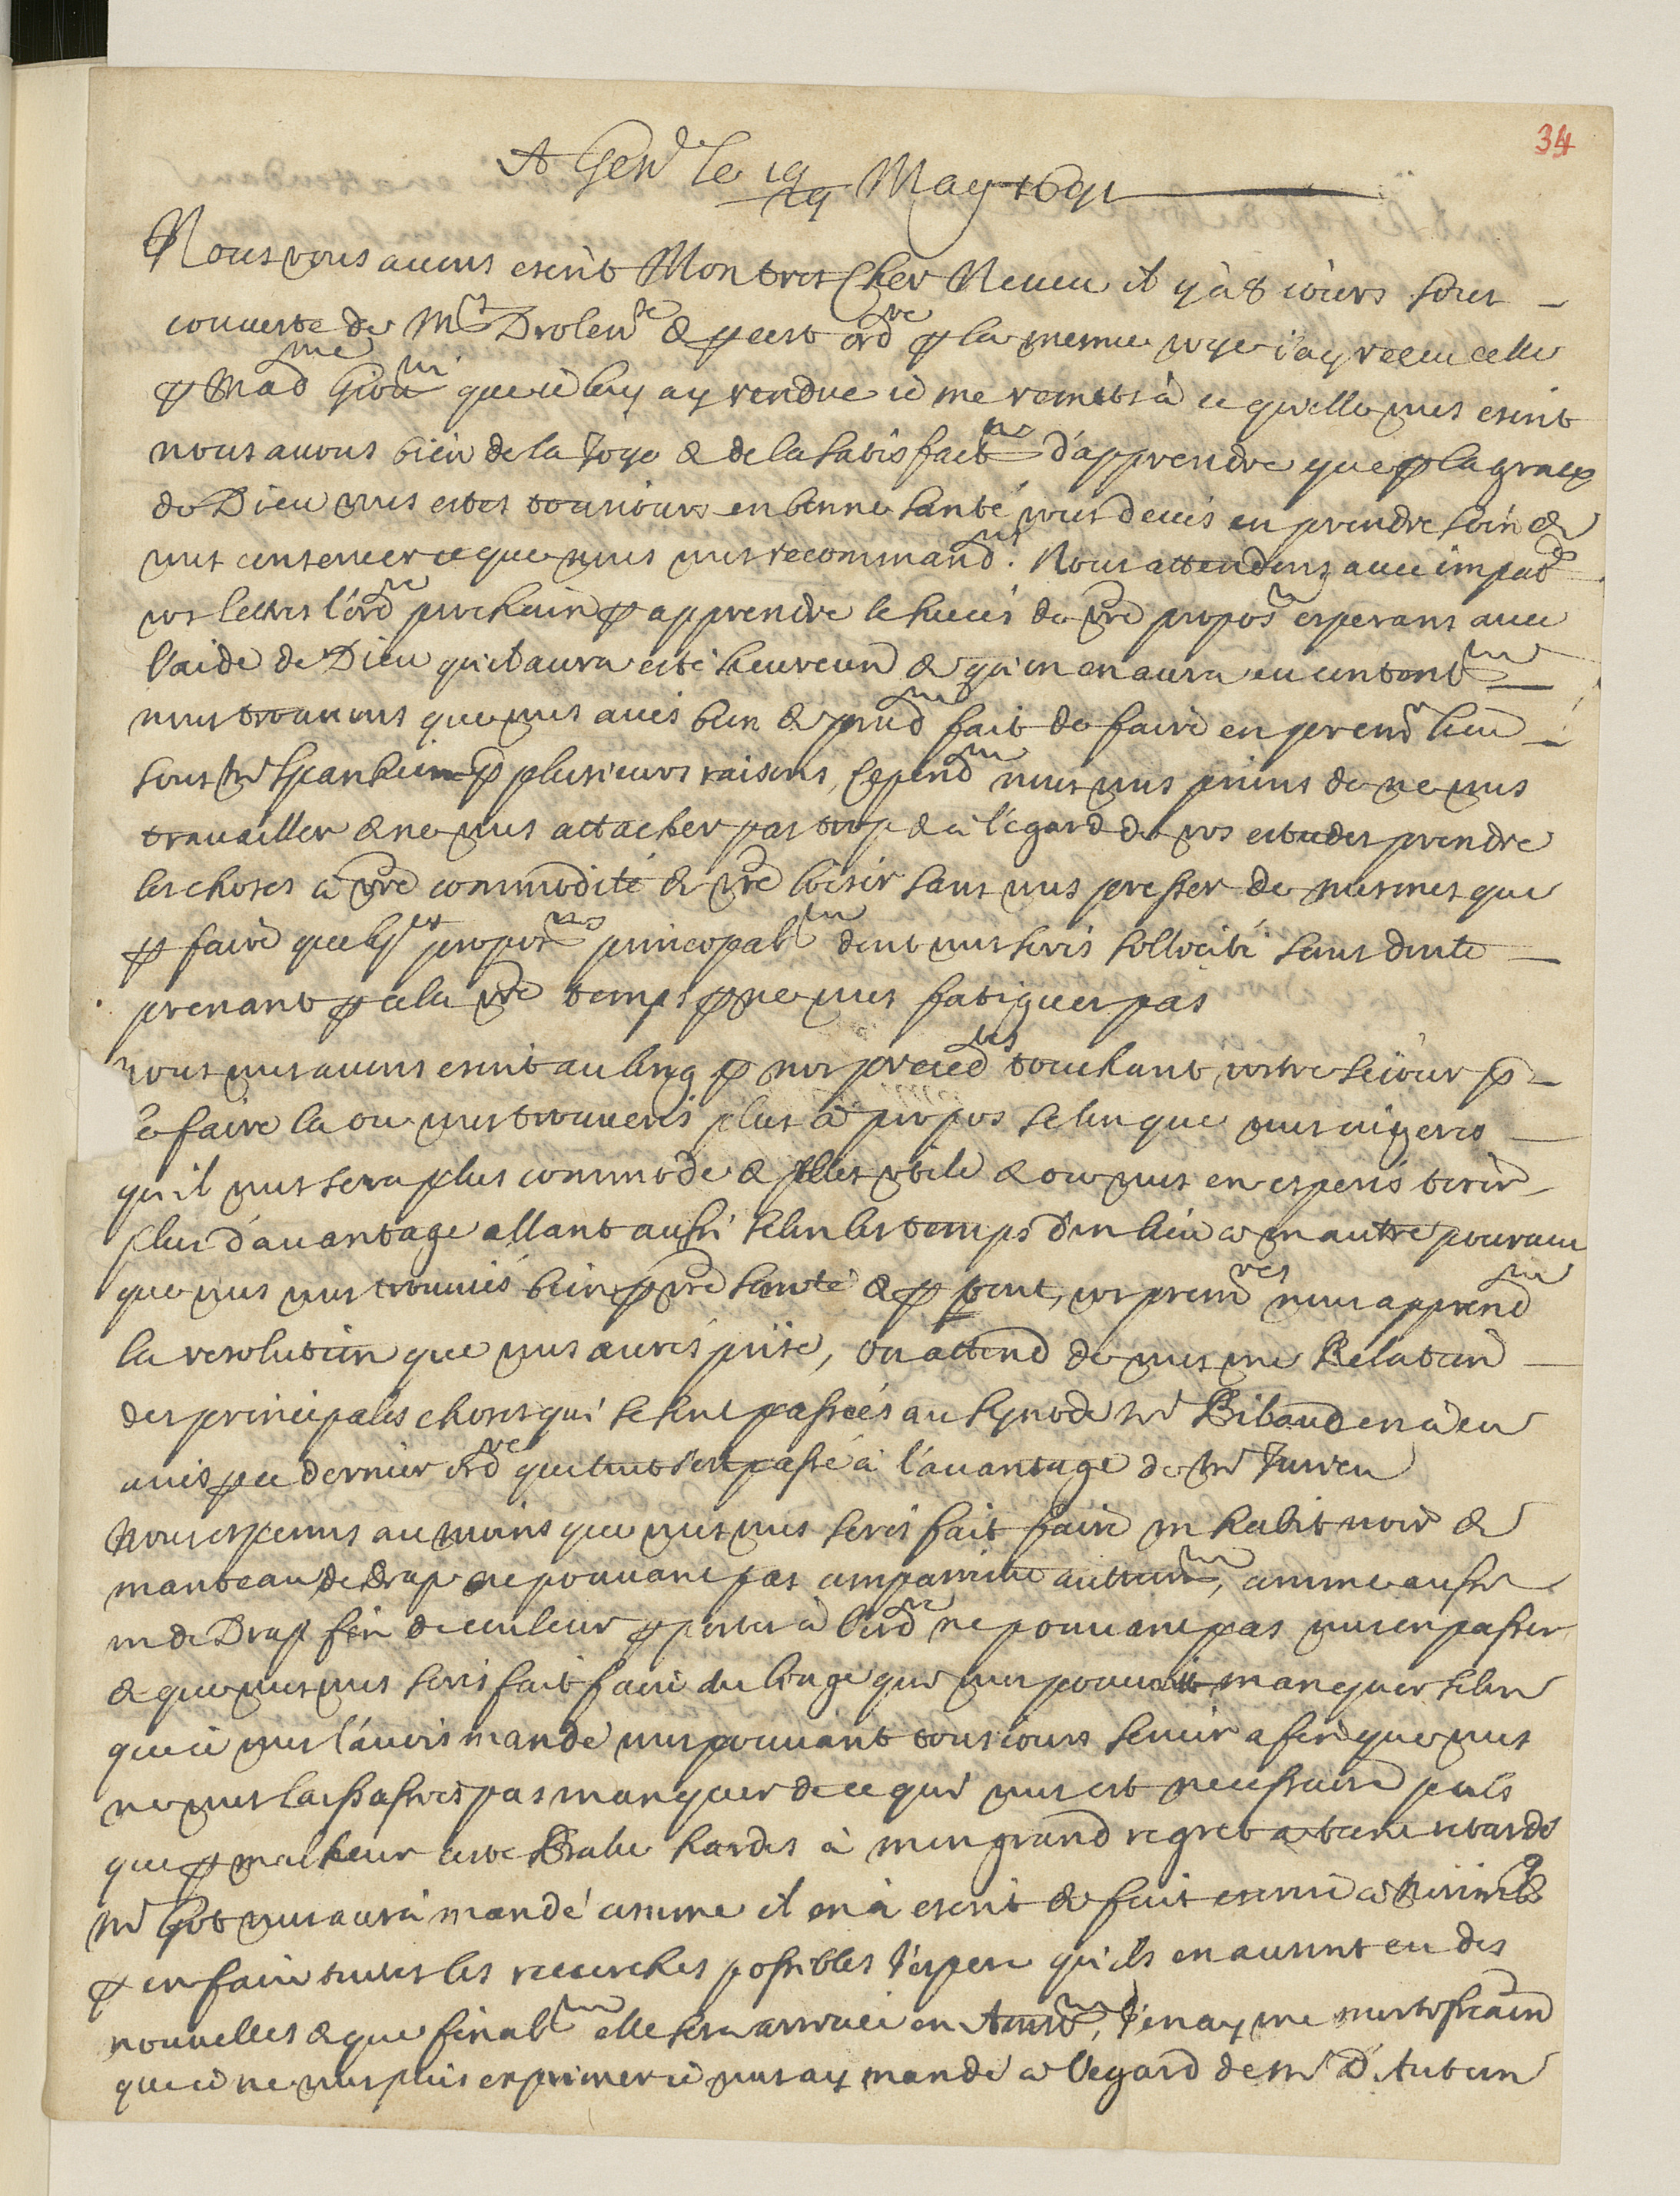 34
A Gen le 19/29 May 1691
Nous vous avons escrit Mon tres Cher Neveu il y à 8 iours sous
couverte de Mr Drolenve & p cest ordre p la mesme voye i'ay receu celle
p Madme que ie luy ay rendue ie me remets à ce qu'elle vous escrit
nous avons bien de la Joye & de la satisfactn d'apprendre que p la grace
de Dieu vous estes tousiours en bonne santé, vous devés en prendre soin &
vous conserver ce que nous vous recommandns. Nous attendons avec impatce
vos lettres l'ordre prochain p apprendre le succés de vre proposn esperans avec
l'aide de Dieu qu'il aura esté heureux & qu'on en aura eu contentmt
nous trouvons que vous avés bien & prudmt fait de faire en premr lieu
sous Mr Spanheim p plusieurs raisons, Cependt nous vous prions de ne vous
travailler & ne vous attacher pas trop & à l'égard de vos estudes prendre
les choses à vre commodité & vre loisir sans vous presser de mesmes que
p faire quelqes proposns principalmt dont vous serés sollicité sans doute
prenant p cela vre temps p ne vous fatiguer pas
nous vous avons escrit au long p nos precedtes touchant vostre seiour p
le faire la ou vous trouverés plus à propos selon que vous iugerés
qu'il vous sera plus commode & plus utile & ou vous en esperés tirer
plus d'avantage allant aussi selon les temps d'un lieu à un autre pourveu
que vous vous trouviés bien p vre santé & p tout, vos premres nous apprendrnt
la resolution que vous aurés prise, On attend de vous une Relation
des principales choses qui se sont passées au synode Mr Bibaud en à eu
avis p ce dernier ordre que tout s'est passé à l'avantage de Mr Jurieu
Nous esperons au moins que vous vous serés fait faire un habit noir &
manteau de drap ne pouvant pas comparoitre autremt, comme aussi
un de Drap fin de couleur p porter à l'ordre ne pouvant pas vous en passer
& que vous vous serés fait faire du linge qui vous pouvoit manquer selon
que ie vous l'avois mandé vous pouvant tousiours servir afin que vous
ne vous laissassiés pas manquer de ce qui vous est necessaire puis
que p malheur ceste Bale hardes à mon grand regret a tant retardé
Mr vous aura mandé comme il en à escrit & fait escrire à
p en faire toutes les recerches possibles J'espere qu'ils en auront eu des
nouvelles & que finalmt elle sera arrivée en Amsm, J'en ay une mortification
que ie ne vous puis exprimer ie vous ay mandé à l'egard de Mr D'Autun